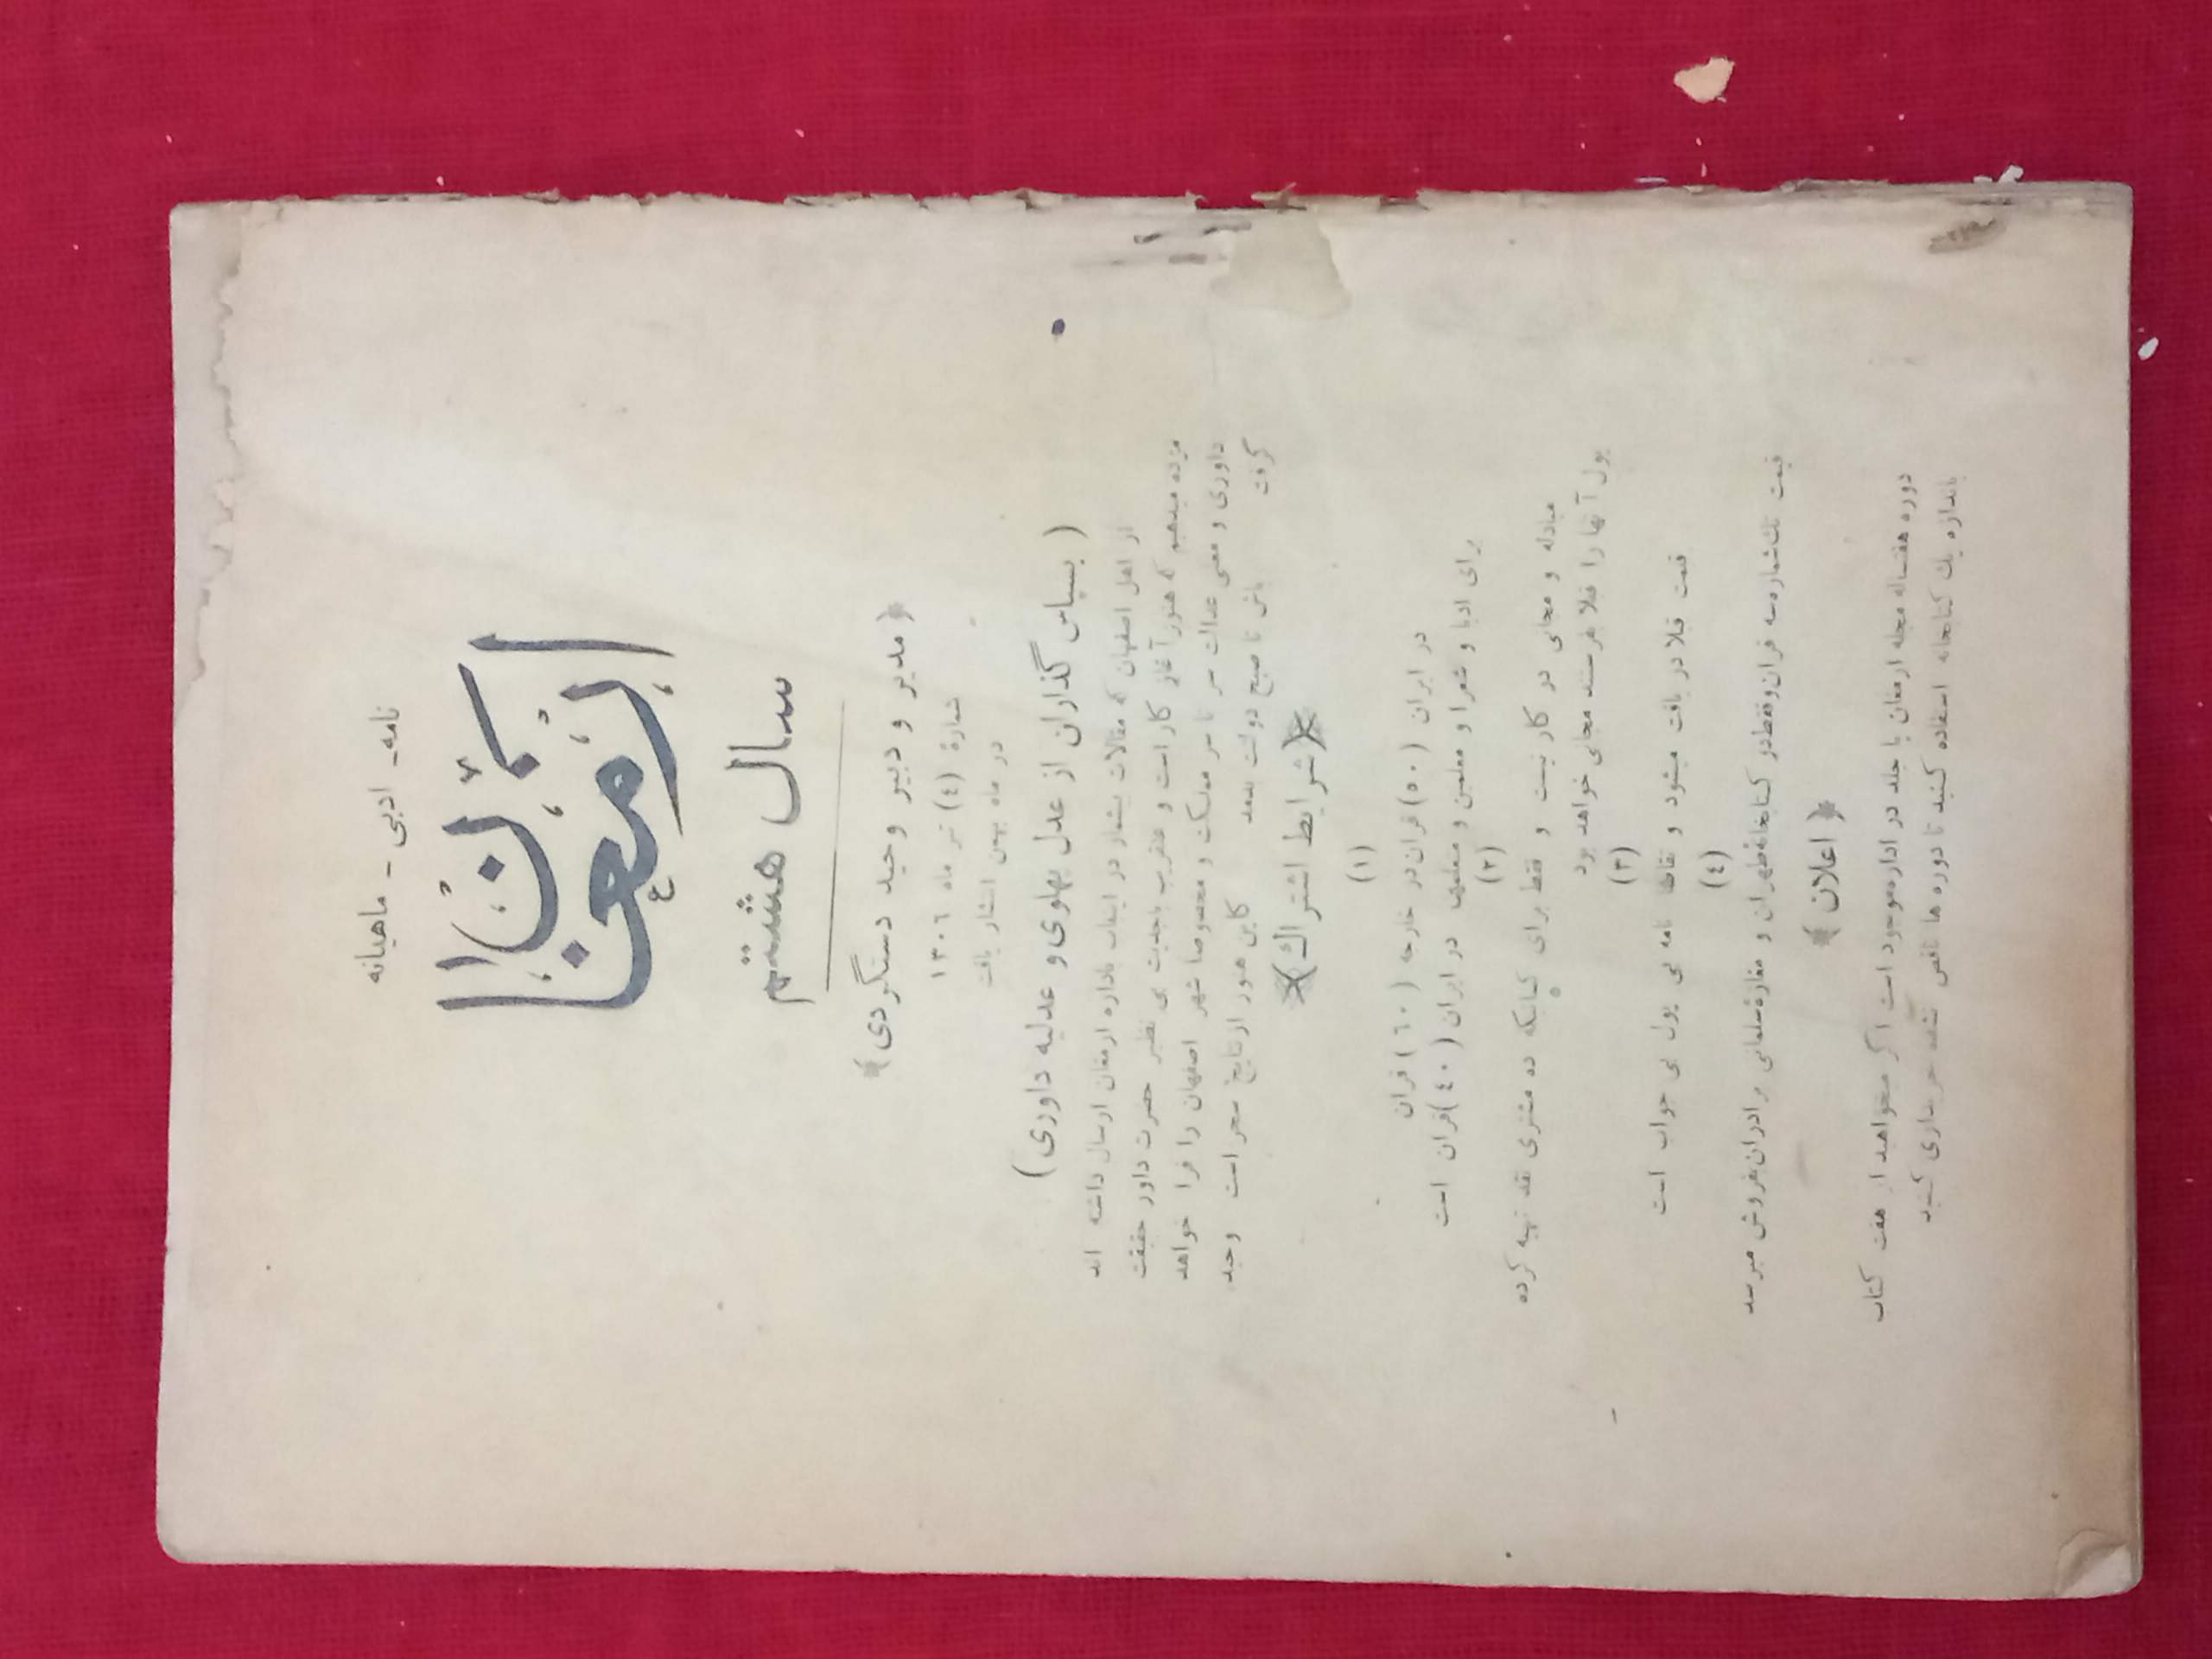 نامه ـ ادبی ـ ماهیانه
ارمغان
سال هشتم
﴿ مدیر و دبیر وحید دستگردی ﴾
شماره (٤) تیر ماه ١٣٠٦
در ماه بهمن انتشار یافت
( بسپاس گذاران از عدل پهلوی و عدلیه داوری )
از اهل اصفهان که مقالات بیشمار در اینباب باداره ارمغان ارسال داشته اند
مژده میدهیم که هنوز آغاز کار است و عنقریب باجدیت بی نظیر حضرت داور حقیقت
داوری و معنی عدالت سر تا سر مملکت و مخصوصا شهر اصفهان را فرا خواهد
گرفت باش تا صبح دولت بدمد کاین هنوز از نتایج سحر است وحید
(شرایط اشتراك)
(١)
در ایران (٥٠) قران در خارجه (٦٠) قران
برای ادبا و شعرا و معلمین و متعلمین در ایران (٤٠) قران است
(٢)
مبادله و مجانی در کار نیست و فقط برای کسانیکه ده مشتری نقد تهیه کرده
پول آنها را قبلا بفرستند مجانی خواهد بود
(٣)
قیمت قبلا دریافت میشود و تقاضا نامه بی پول بی جواب است
(٤)
قیمت تك شماره سه قران و فقط در کتابخانه طهران و مغازه سلمانی برادران بفروش میرسد
﴿ اعلان ﴾
دوره هفتساله مجله ارمغان با جلد در اداره موجود است اگر میخواهید از هفت کتاب
باندازه یك کتابخانه استفاده کنید تا دوره ها ناقص نشده خریداری کنید